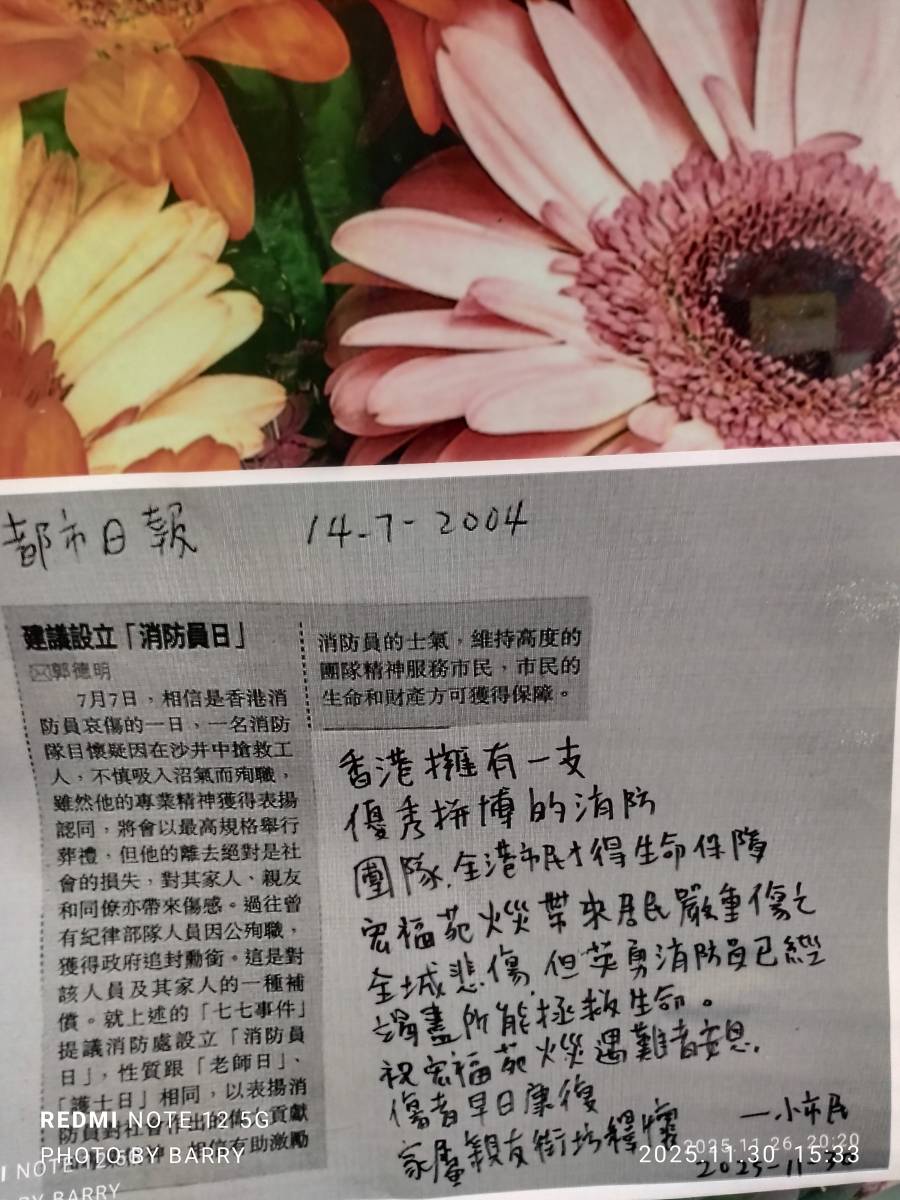 都市日報 14-7-2004
建議設立「消防員日」
郭德明
7月7日，相信是香港消
防員哀傷的一日，一名消防
隊目懷疑因在沙井中搶救工
人，不慎吸入沼氣而殉職，
雖然他的專業精神獲得表揚
認同，將會以最高規格舉行
葬禮，但他的離去絕對是社
會的損失，對其家人、親友
和同僚亦帶來傷感。過往曾
有紀律部隊人員因公殉職，
獲得政府追封勳銜。這是對
該人員及其家人的一種補
償。就上述的「七七事件」
提議消防處設立「消防員
日」，性質跟「老師日」、
「護士日」相同，以表揚消
防員對社會作出的 貢獻
有助激勵
消防員的士氣，維持高度的
團隊精神服務市民，市民的
生命和財產方可獲得保障。
香港擁有一支
優秀拼博的消防
團隊，全港市民才得生命保障
宏福苑火災帶來居民嚴重傷亡
全城悲傷，但英勇消防員已經
竭盡所能拯救生命。
祝宏福苑火災遇難者安息，
傷者早日康復
家屬親友街坊釋懷
一小市民
2025-11-30
REDMI NOTE 12 5G
PHOTO BY BARRY
2025.11.30 15:33
2025.11.26 20:20
I NOTE 12 5G
BY BARRY